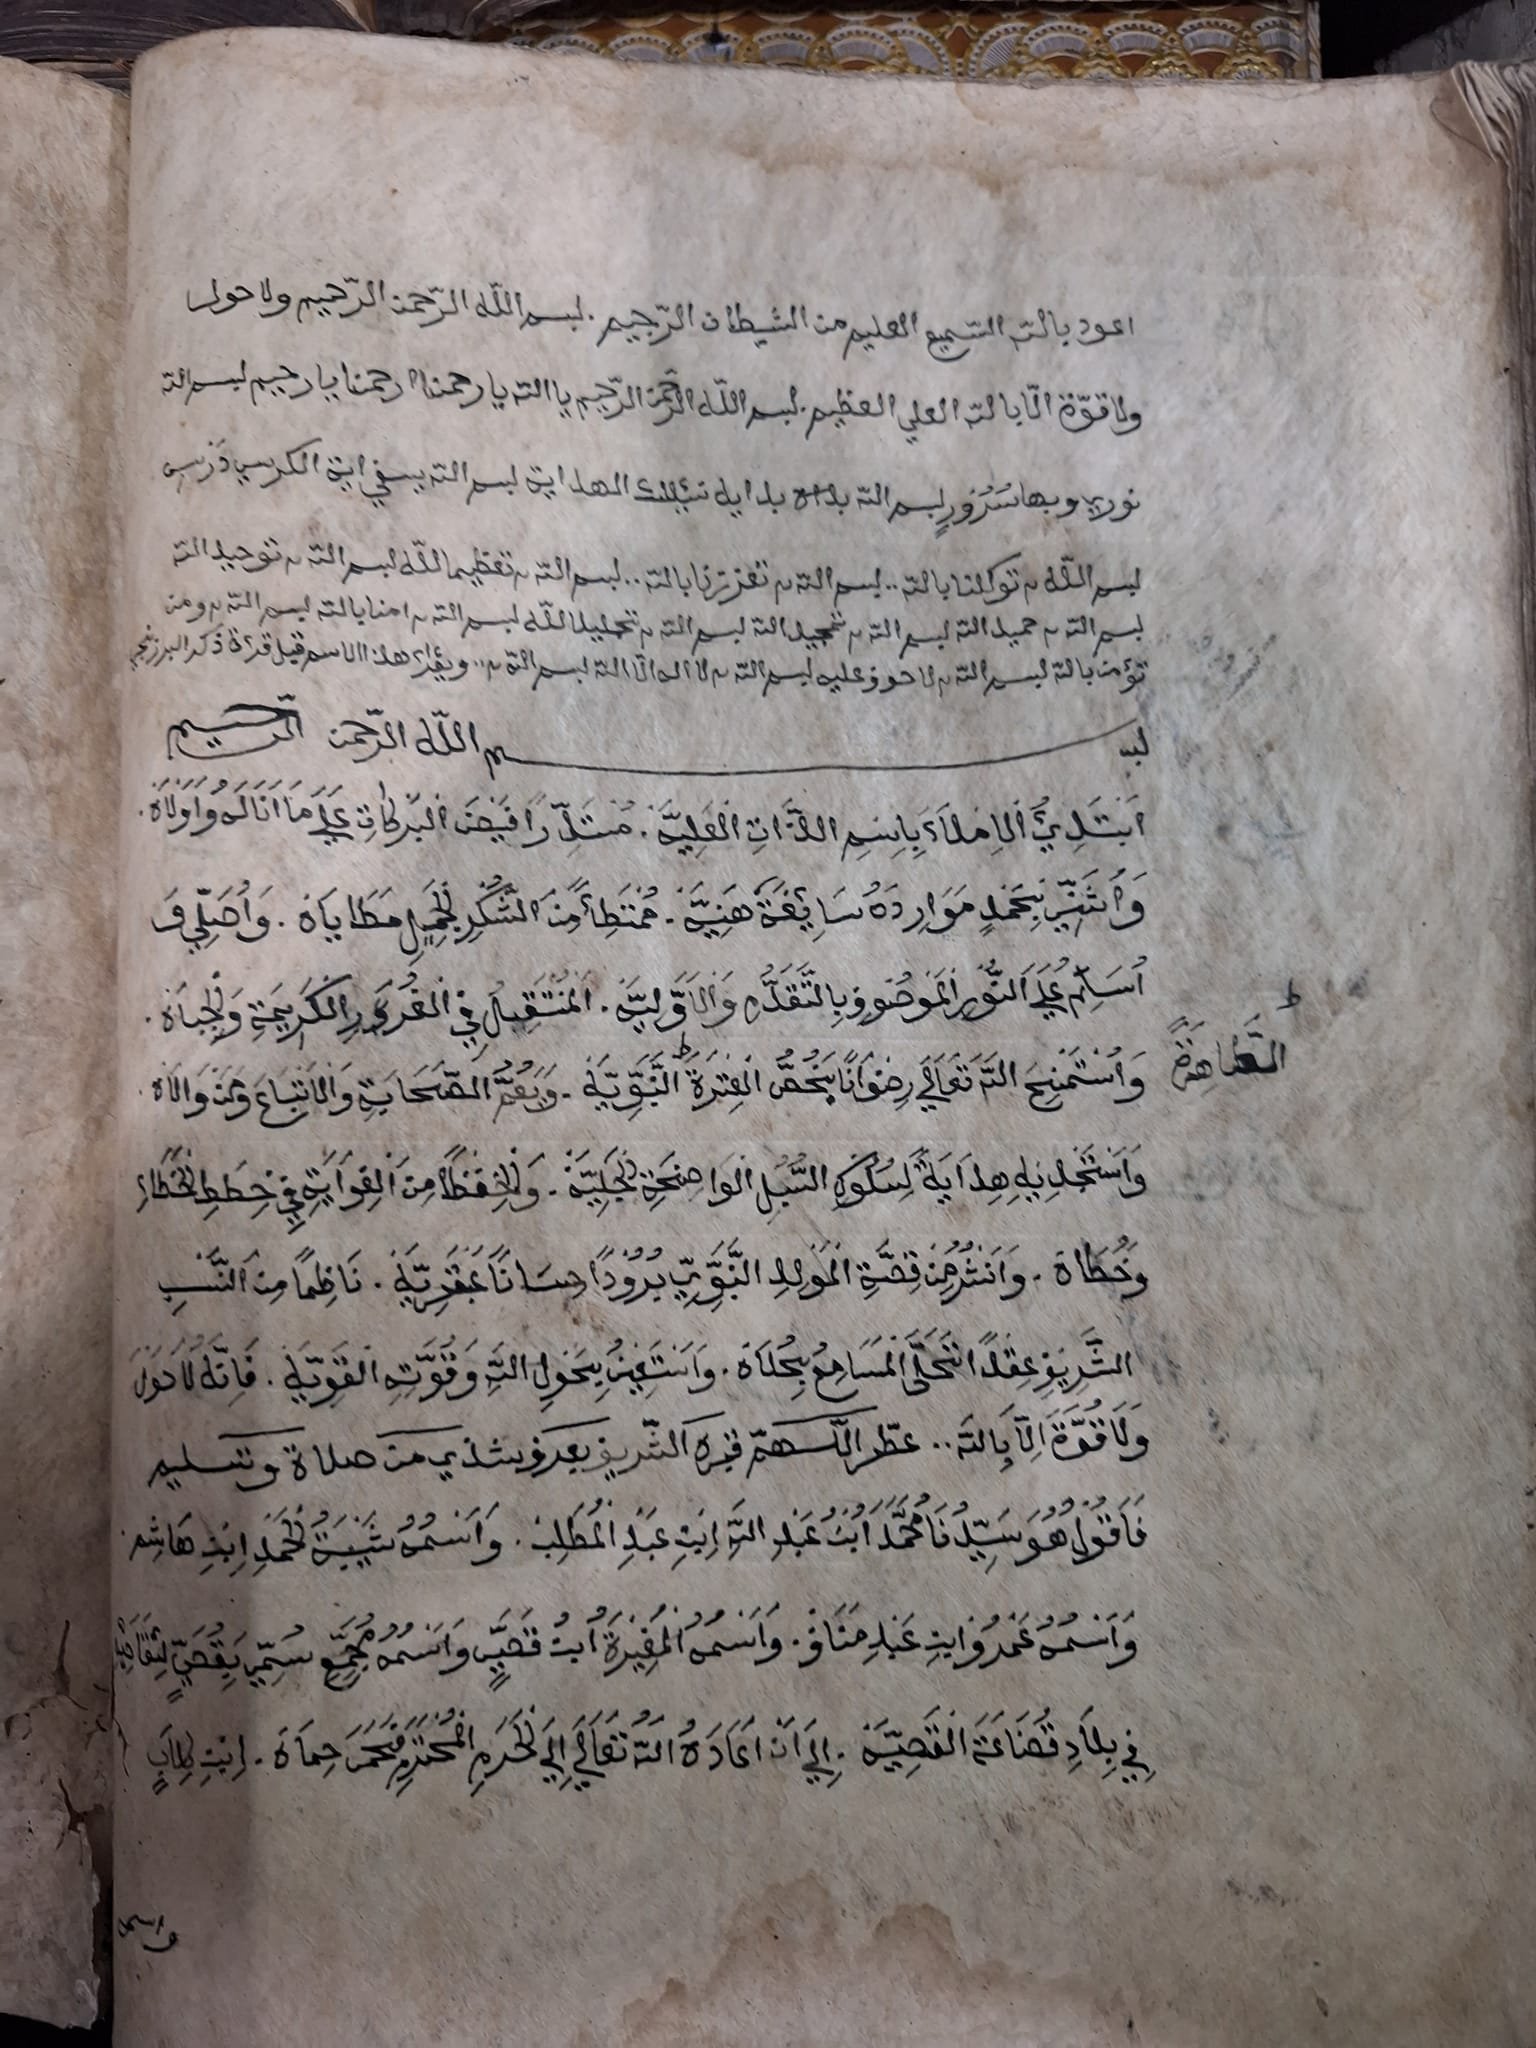 اعود بالله السّميع العليم من الشيطان الرّجيم . بسم اللّه الرّحمن الرّحيم ولا حول
ولا قوّة الّا بالله العلي العظيم . بسم اللّه الرّحمن الرّحيم يا الله يا رحمن ارحمنا يا رحيم بسم الله
نوري وبها سُرُورٍ بسم الله بداة بداية الهداية بسم الله اية الكرسي
بسم اللّه توكلنا بالله .. بسم الله تعززنا بالله .. بسم الله تعظيما للّه بسم الله توحيد الله
بسم الله حميد الله بسم الله تمجيد الله بسم الله تحليلا للّه بسم الله امنا بالله بسم الله ومن
تؤمن بالله بسم الله لا حوف عليه بسم الله لا اله الّا الله بسم الله .. ويقرأ هذا الاسم قبل قرئة ذكر البرزنجي
بسم اللّه الرّحمن الرّحيم
اَبْتَدِئُ الْاِمْلَاءَ بِاسْمِ الذَّاتِ الْعَلِيَّهْ . مُسْتَدِرًّا فَيْضَ الْبَرَكَاتِ عَلَى مَا اَنَالَهُ وَاَوْلَاهُ .
وَاُثَنِّيْ بِحَمْدٍ مَوَارِدُهُ سَائِغَةٌ هَنِيَّهْ . مُمْتَطِأً مِنَ الشُّكْرِ الْجَمِيْلِ مَطَايَاهْ . وَاُصَلِّي وَ
اُسَلِّمُ عَلَى النُّوْرِ الْمَوْصُوْفِ بِالتَّقَدُّمِ وَالْاَوَّلِيَّهْ . الْمُنْتَقِلِ فِي الْغُرَرِ الْكَرِيْمَةِ وَالْجِبَاهْ .
وَاَسْتَمْنِحُ اللَّهَ تَعَالَى رِضْوَانًا يَخُصُّ الْعِتْرَةَ النَّبَوِيَّهْ . وَيَعُمُّ الصَّحَابَةَ وَالْاَتْبَاعَ وَمَنْ وَالَاهْ .
الطَّاهِرَةَ
وَاَسْتَجْدِيْهِ هِدَايَةً لِسُلُوْكِ السُّبُلِ الْوَاضِحَةِ الْجَلِيَّهْ . وَالْحِفْظًا مِنَ الْغِوَايَةِ فِيْ خِطَطِ الْخَطَاءِ
وَخُطَاهْ . وَاَنْشُرُ مِنْ قِصَّةِ الْمَوْلِدِ النَّبَوِيِّ بُرُوْدًا حِسَانًا عَبْقَرِيَّهْ . نَاظِمًا مِنَ النَّسَبِ
الشَّرِيْفِ عِقْدًا تَتَحَلَّى الْمَسَامِعُ بِحُلَاهْ . وَاَسْتَعِيْنُ بِحَوْلِ اللَّهِ وَقُوَّتِهِ الْقَوِيَّهْ . فَاِنَّهُ لَا حَوْلَ
وَلَا قُوَّةَ اِلَّا بِاللَّهْ .. عطّر اللّهمّ قبره الشّريف بعرف شذي من صلاة وتسليم
فَاَقُوْلُ هُوَ سَيِّدُنَا مُحَمَّدٌ ابْنُ عَبْدِ اللَّهِ اِبْنِ عَبْدِ الْمُطَلِبْ . وَاسْمُهُ شَيْبَةُ الْحَمْدِ اِبْنِ هَاشِمْ
وَاسْمُهُ عَمْرُوْ ابْنِ عَبْدِ مَنَافْ . وَاسْمُهُ الْمُغِيْرَةُ ابْنُ قُصَيٍّ وَاسْمُهُ مُجَمِّعْ سُمِّيَ بِقُصَيٍّ لِتَقَاصِيْهِ
فِي بِلَادِ قُضَاعَةَ الْقَصِيَّهْ . اِلَى اَنْ اَعَادَهُ اللَّهُ تَعَالَى اِلَى الْحَرَمِ الْمُحْتَرَمِ فَحَمَى حِمَاهْ . اِبْنِ كِلَابٍ
واسمه